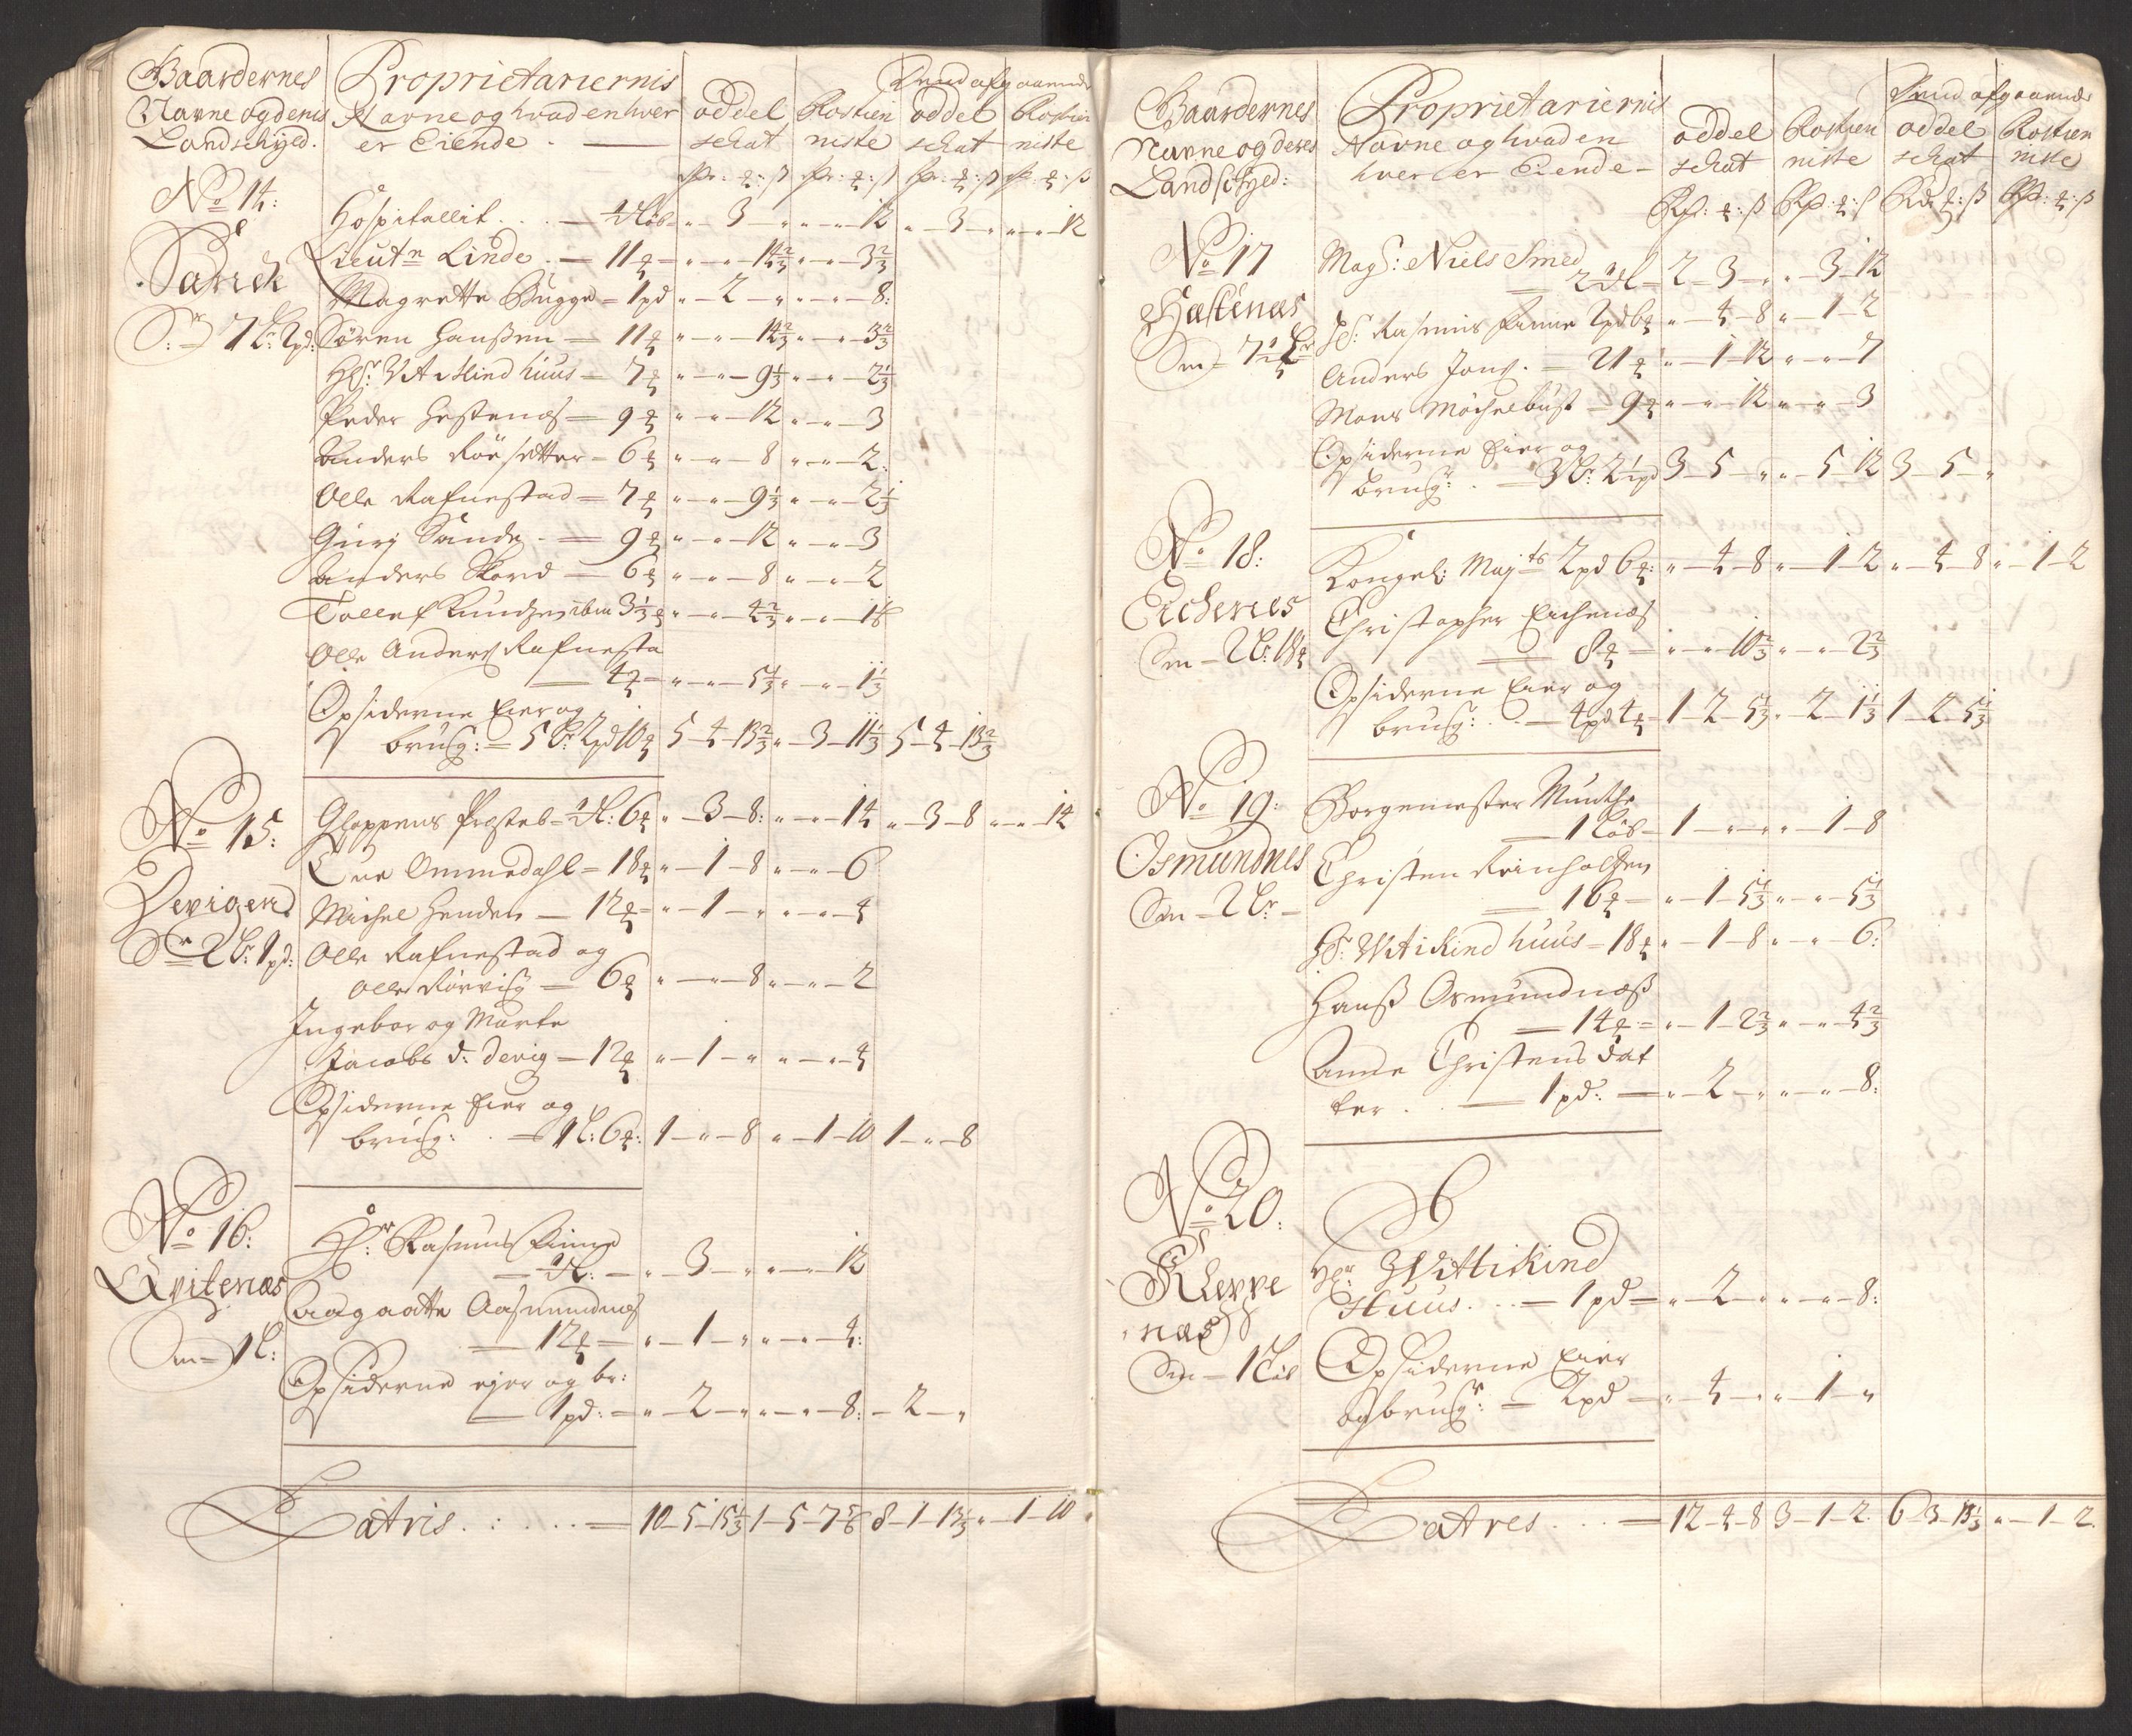 Gaardernes
Navne og denis
Landschyld.
Proprietariernis
Navne og hvad en hver
er Eiende . —
oddel
schat
Rostien
niste
Derud afgaaende
oddel
schat
Rostien
niste
No 14:
Sande
Sr — 7 L: 2pd:
Hospitallit . . — ½ Løb — " — 3 — " — " — " — 12 " — 3 — " — " — " — 12
Lieutn Linde . — 11 — " — " — 14⅔ " — " — 3⅔
Magrette Bugge = 1pd " — 2 — " — " — " — 8:
Søren Hanssen — 11 " — " — 14⅔ " — " — 3⅔
Hr: Witikind Huus = 7 " — " — 9⅓ " — " — 2⅓
Peder Hestenes — 9 " — " — 12 " — " — 3
Anders Rösetter — 6 " — " — 8 " — " — 2:
Olle Rafnestad = 7 " — " — 9⅓ " — " — 2⅓
Guri Sande . = 9 " — " — 12 " — " — 3
Anders Skord — 6 " — " — 8 " — " — 2
Tollef 3⅓ " — " — 4⅔ " — " — 1
Olle Anders Rafnesta
— 4 — " — " — 5⅓ " — " — 1⅓
Opsiderne Eier og
brug: = 5 Lr 2pd 10 5 — 4 — 13⅔ " — 3 — 11⅓ 5 — 4 — 13⅔
No 15:
Devigen
Sr 2 L: 1pd:
Gloppens Presteb = ½ L: 6 " — 3 — 8: " — " — 14 " — 3 — 8 " — " — 14
Ommedahl = 18 " — 1 — 8 " — " — 6
Michel Henden — 12 — " — 1 — " " — " — 4
Olle Rafnestad og
Olle Rörvig — 6 " — " — 8 " — " — 2
Ingebor og Marte
Jacobs d: Devig — 12 " — 1 — " " — " — 4
Opsiderne Eier og
brug: . — 1 L: 6: 1 — " — 8 " — 1 — 10 1 — " — 8
No 16:
Qvitenæs
Sm = 1 L:
Hr: Rasmus Finne
— ½ L: — " — 3 — " " — " — 12
Aagaatte Aasmundnes
— 12 — " — 1 — " " — " — 4:
Opsiderne ejer og br:
— 1pd: — " — 2 — " " — " — 8: — 2 — "
Latris . : . . . — 10 — 5 — 15⅓ 1 — 5 — 7⅚ 8 — 1 — 13⅔ " — 1 — 10
Gaardernes
Navne og deres
Landschyld:
Proprietariernis
Navne og hvad en
hver er Eiende —
oddel
schat
Rostien
niste
Derud afgaaende
oddel
schat
Rostien
niste
No 17
Hæstenæs
Sm = 7½ Lr
Magr: Niels Smed
— 2½ L — 2 — 3 — " " — 3 — 12
Hr: Rasmus Finne 2pd 6 " — 4 — 8 " — 1 — 2
Anders Jons . = 21 " — 1 — 12 " — " — 7
Mons Möchelbust — 9 " — " — 12 " — " — 3
Opsiderne Eier og
brug: . — 3 Lr: 2½pd 3 — 5 — " " — 5 — 12 3 — 5 — "
No 18:
Eichenes
Sm — 2 Lr: 18
Kongel: Majts 2pd 6: " — 4 — 8 " — 1 — 2 " — 4 — 8 " — 1 — 2
Christopher Eichenæs
— 8 — " — " — 10⅔ " — " — 2⅔
Opsiderne Eier og
brug: . . — 4pd 4 — 1 — 2 — 5⅓ " — 2 — 1⅓ 1 — 2 — 5⅓
No 19:
Osmundnes
Sm — 2 Lr —
Borgemester Munthe
— 1 Löb — 1 — " — " " — 1 — 8
Christen Reinholtsen
— 16 — " — 1 — 5⅓ " — " — 5⅓
Hr: Witikind Huus — 18 " — 1 — 8 " — " — 6:
Hanss Osmundnæss
— 14 = " — 1 — 2⅔ " — " — 4⅔
Anne Christens dat
ter . . — 1pd: — " — 2 — " " — " — 8:
No 20:
Kleppe
næs
Sm — 1 Löb
Hr: Wittikind
Huus . . . — 1pd — " — 2 — " " — " — 8:
Opsiderne Eier
og brugr: — 2pd — " — 4 — " " — 1 — "
Latres . . . — 12 — 4 — 8 3 — 1 — 2 6 — 3 — 13⅓ " — 1 — 2